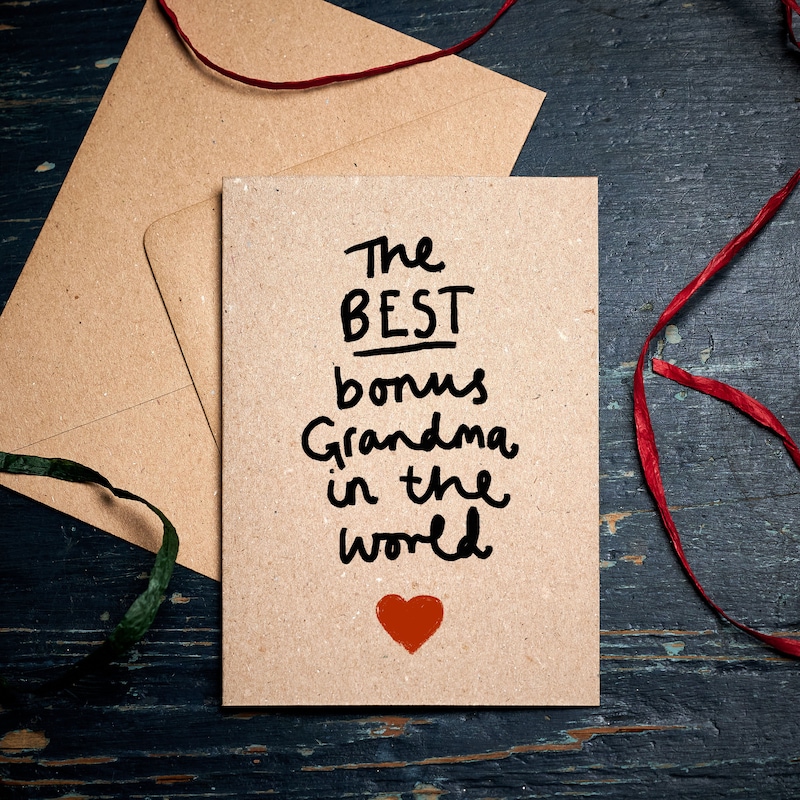 The
BEST
bonus
Grandma
in the
world